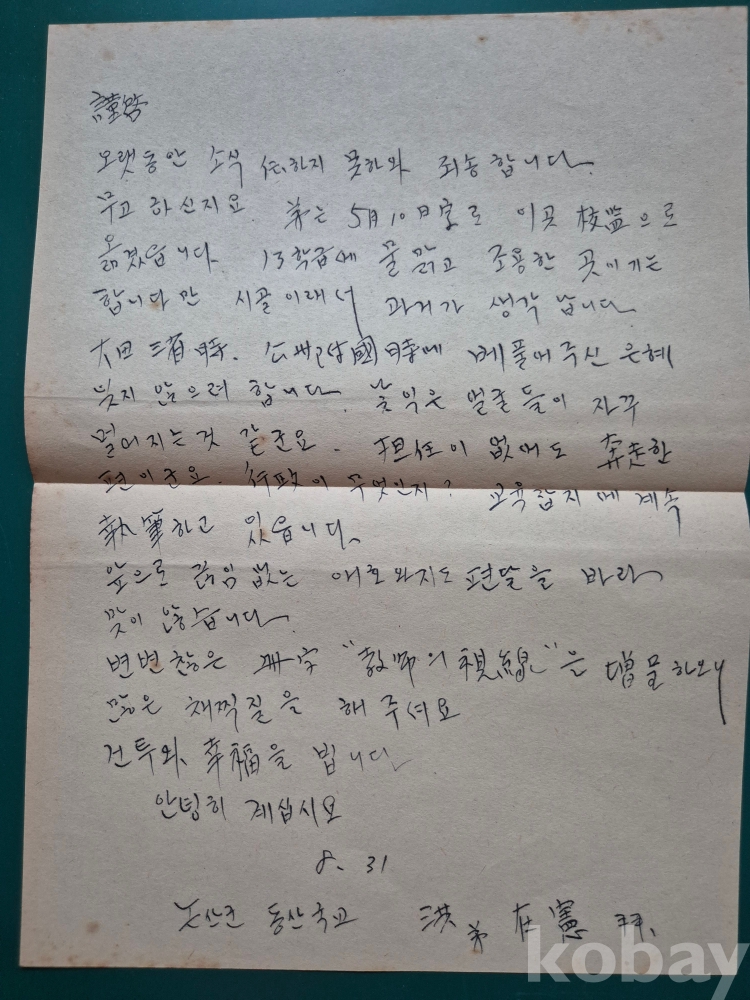 謹啓
오랫동안 소식 伝하지 못하와 죄송합니다.
무고 하신지요. 弟는 5月10日字로 이곳 校監으로
옮겼습니다. 13학급에 물 맑고 조용한 곳이기는
합니다만 시골이래서 과거가 생각 납니다.
大田 三省時. 公州 國時에 베풀어주신 은혜
잊지 않으려 합니다. 낯익은 얼굴들이 자꾸
멀어지는것 같군요. 担任이 없어도 奔走한
편이군요. 行政이 무엇인지? 교육잡지에 계속
執筆하고 있습니다.
앞으로 끊임 없는 애호와지도편달을 바라
맞이 않습니다.
변변찮은 冊字 "敎師의 視線"을 增呈하오니
많은 채찍질을 해 주셔요
건투와 幸福을 빕니다
안녕히 계십시요
8. 31
논산군 동산국교 洪弟在憲 拜.
kobay